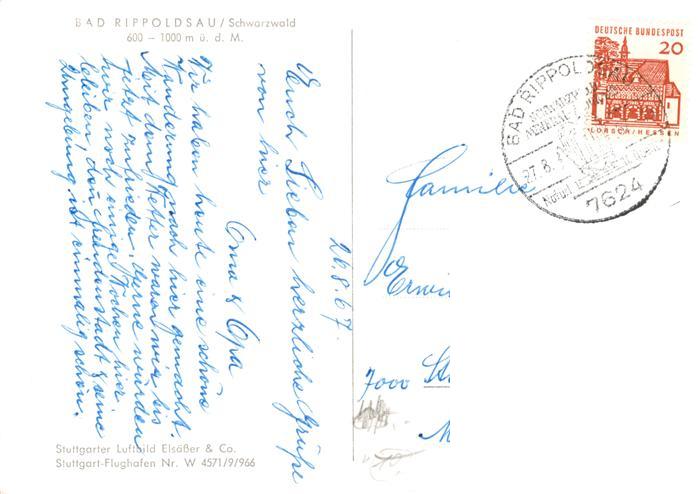 BAD RIPPOLDSAU / Schwarzwald
600 – 1000 m ü. d. M.
26.8.67.
Euch Lieben herzliche Grüße
von hier
Oma & Opa
Wir haben heute eine schöne
Wanderung nach hier gemacht.
Mit dem Wetter waren wir bis
jetzt zufrieden. Gerne würden
wir noch einige Wochen hier
bleiben, denn Freudenstadt & seine
Umgebung ist einmalig schön.
Stuttgarter Luftbild Elsäßer & Co.
Stuttgart-Flughafen Nr. W 4571/9/966
DEUTSCHE BUNDESPOST
20
LORSCH/HESSEN
BAD RIPPOLDSAU
27.8.
7624
Familie
Erwi
7000 St